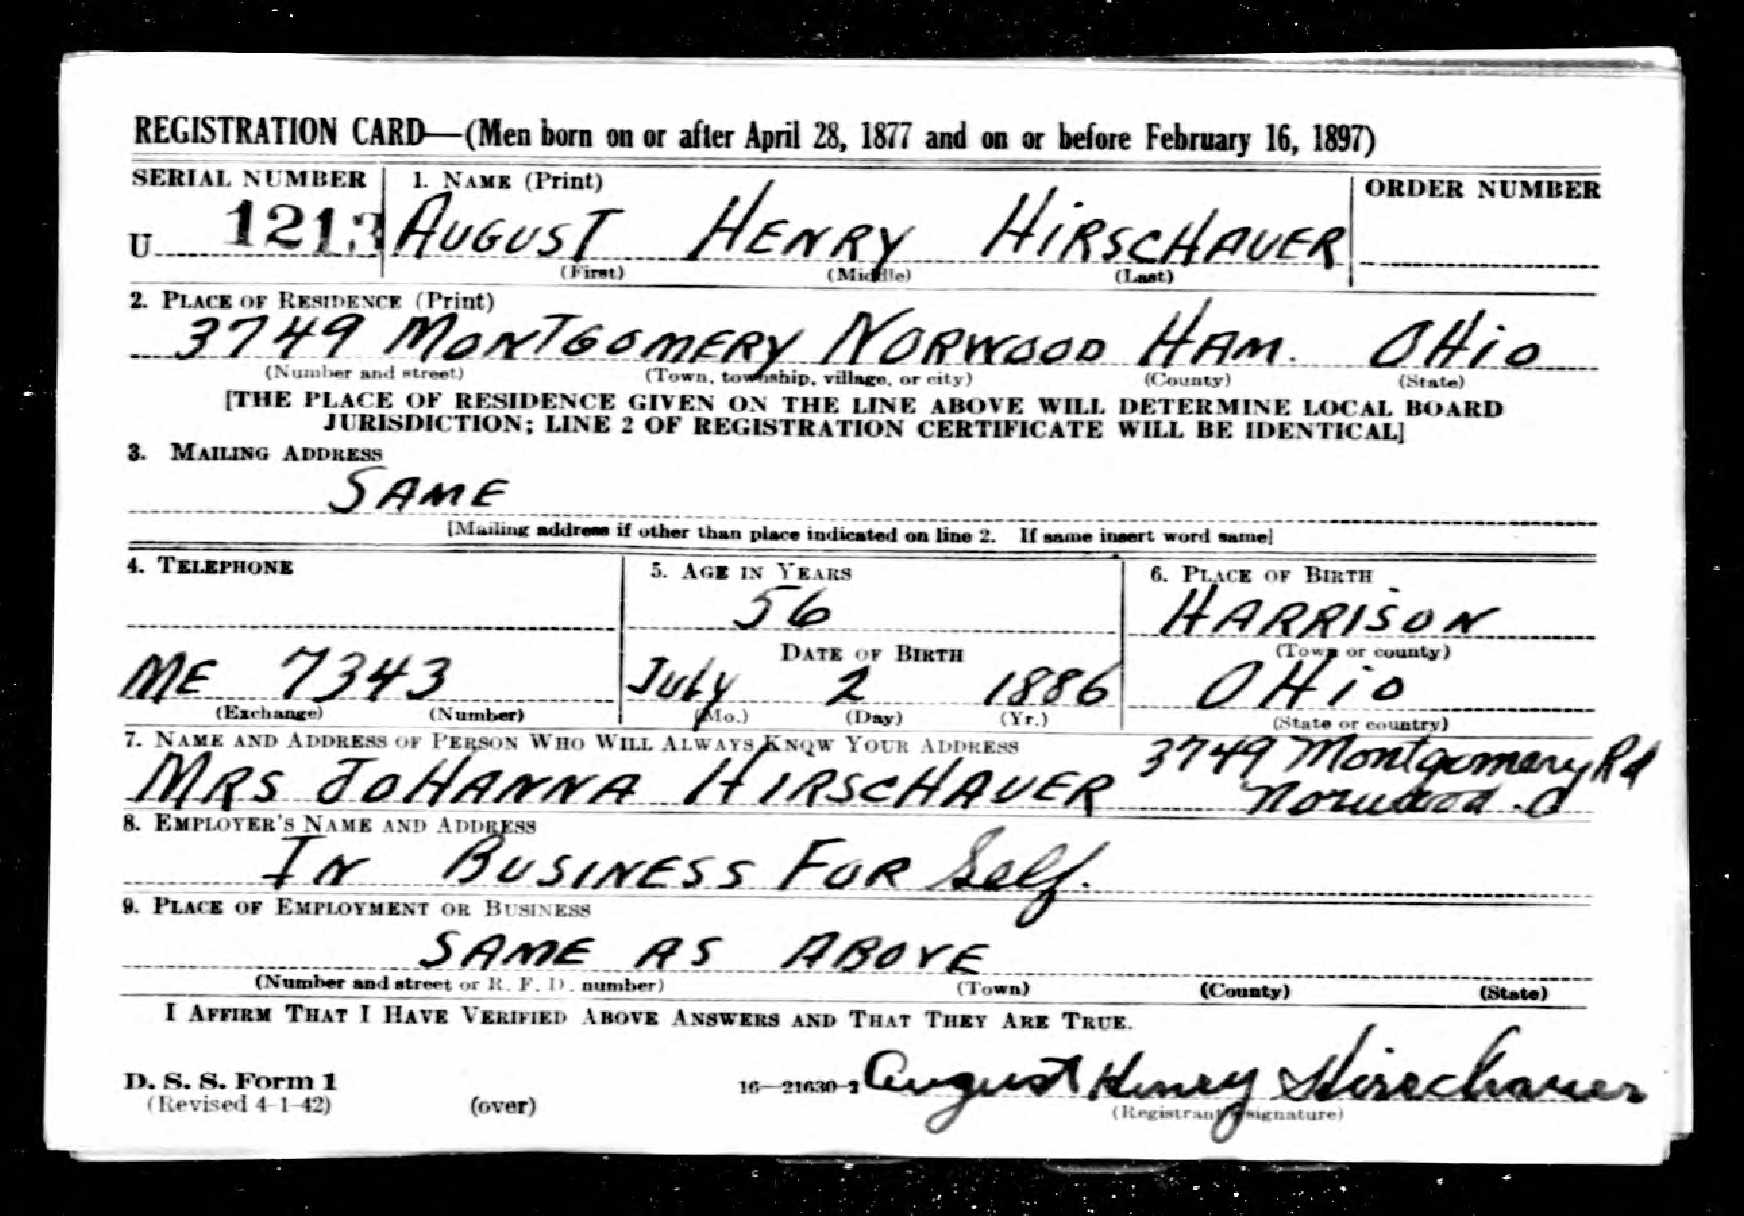 REGISTRATION CARD—(Men born on or after April 28, 1877 and on or before February 16, 1897)
SERIAL NUMBER 1. NAME (Print) ORDER NUMBER
U 1213 AUGUST HENRY HIRSCHAUER
(First) (Middle) (Last)
2. PLACE OF RESIDENCE (Print)
3749 MONTGOMERY NORWOOD HAM. OHIO
(Number and street) (Town, township, village, or city) (County) (State)
[THE PLACE OF RESIDENCE GIVEN ON THE LINE ABOVE WILL DETERMINE LOCAL BOARD
JURISDICTION; LINE 2 OF REGISTRATION CERTIFICATE WILL BE IDENTICAL]
3. MAILING ADDRESS
SAME
[Mailing address if other than place indicated on line 2. If same insert word same]
4. TELEPHONE 5. AGE IN YEARS 6. PLACE OF BIRTH
56 HARRISON
DATE OF BIRTH (Town or county)
ME 7343 July 2 1886 OHIO
(Exchange) (Number) (Mo.) (Day) (Yr.) (State or country)
7. NAME AND ADDRESS OF PERSON WHO WILL ALWAYS KNOW YOUR ADDRESS
MRS JOHANNA HIRSCHAUER 3749 Montgomery Rd
Norwood. O
8. EMPLOYER'S NAME AND ADDRESS
IN BUSINESS FOR Self.
9. PLACE OF EMPLOYMENT OR BUSINESS
SAME AS ABOVE
(Number and street or R. F. D. number) (Town) (County) (State)
I AFFIRM THAT I HAVE VERIFIED ABOVE ANSWERS AND THAT THEY ARE TRUE.
D. S. S. Form 1 16—21630-2 August Henry Hirschauer
(Revised 4-1-42) (over) (Registrant's signature)